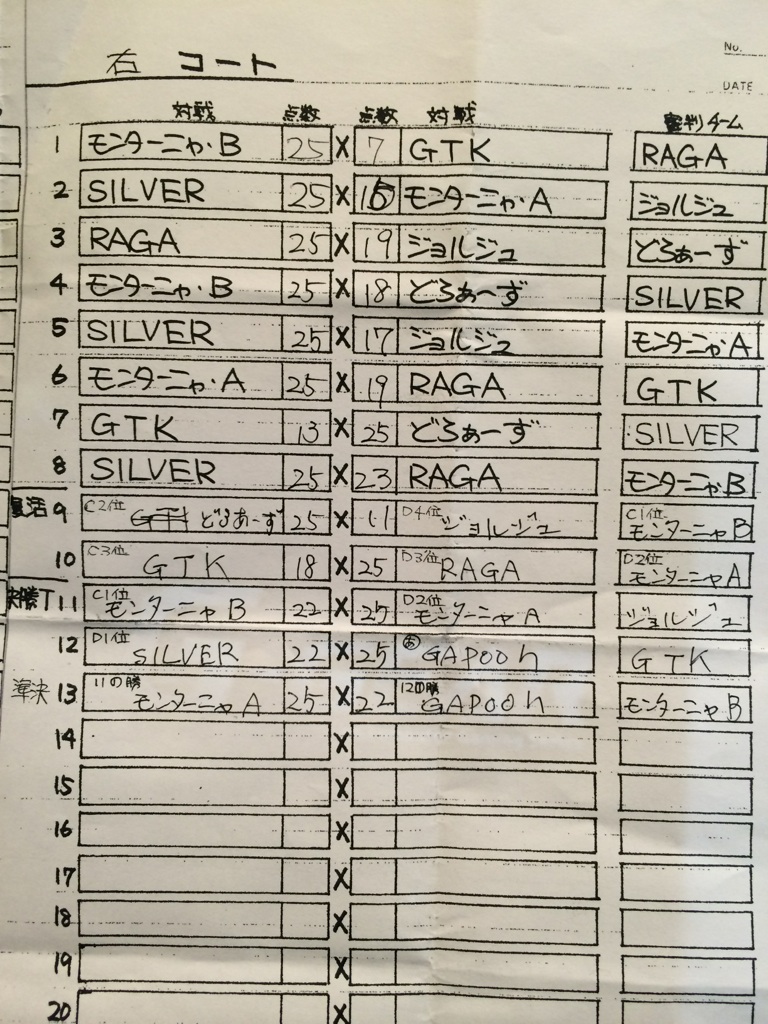 No.
右 コート
DATE
対戦 点数 点数 対戦 審判チーム
1 モンターニャ・B 25 X 7 GTK RAGA
2 SILVER 25 X 15 モンターニャ・A ジョルジュ
3 RAGA 25 X 19 ジョルジュ どろぁーず
4 モンターニャ・B 25 X 18 どろぁ〜ず SILVER
5 SILVER 25 X 17 ジョルジュ モンターニャ・A
6 モンターニャ・A 25 X 19 RAGA GTK
7 GTK 13 X 25 どろぁーず SILVER
8 SILVER 25 X 23 RAGA モンターニャ・B
復活 9 C2位 どろあーず 25 X 11 D4位 ジョルジュ C1位 モンターニャB
10 C3位 GTK 18 X 25 D3位 RAGA D2位 モンターニャA
決勝T 11 C1位 モンターニャB 22 X 25 D2位 モンターニャA ジョルジュ
12 D1位 SILVER 22 X 25 あ GAPOOh GTK
準決 13 11の勝 モンターニャA 25 X 22 12の勝 GAPOOh モンターニャB
14 X
15 X
16 X
17 X
18 X
19 X
20 X